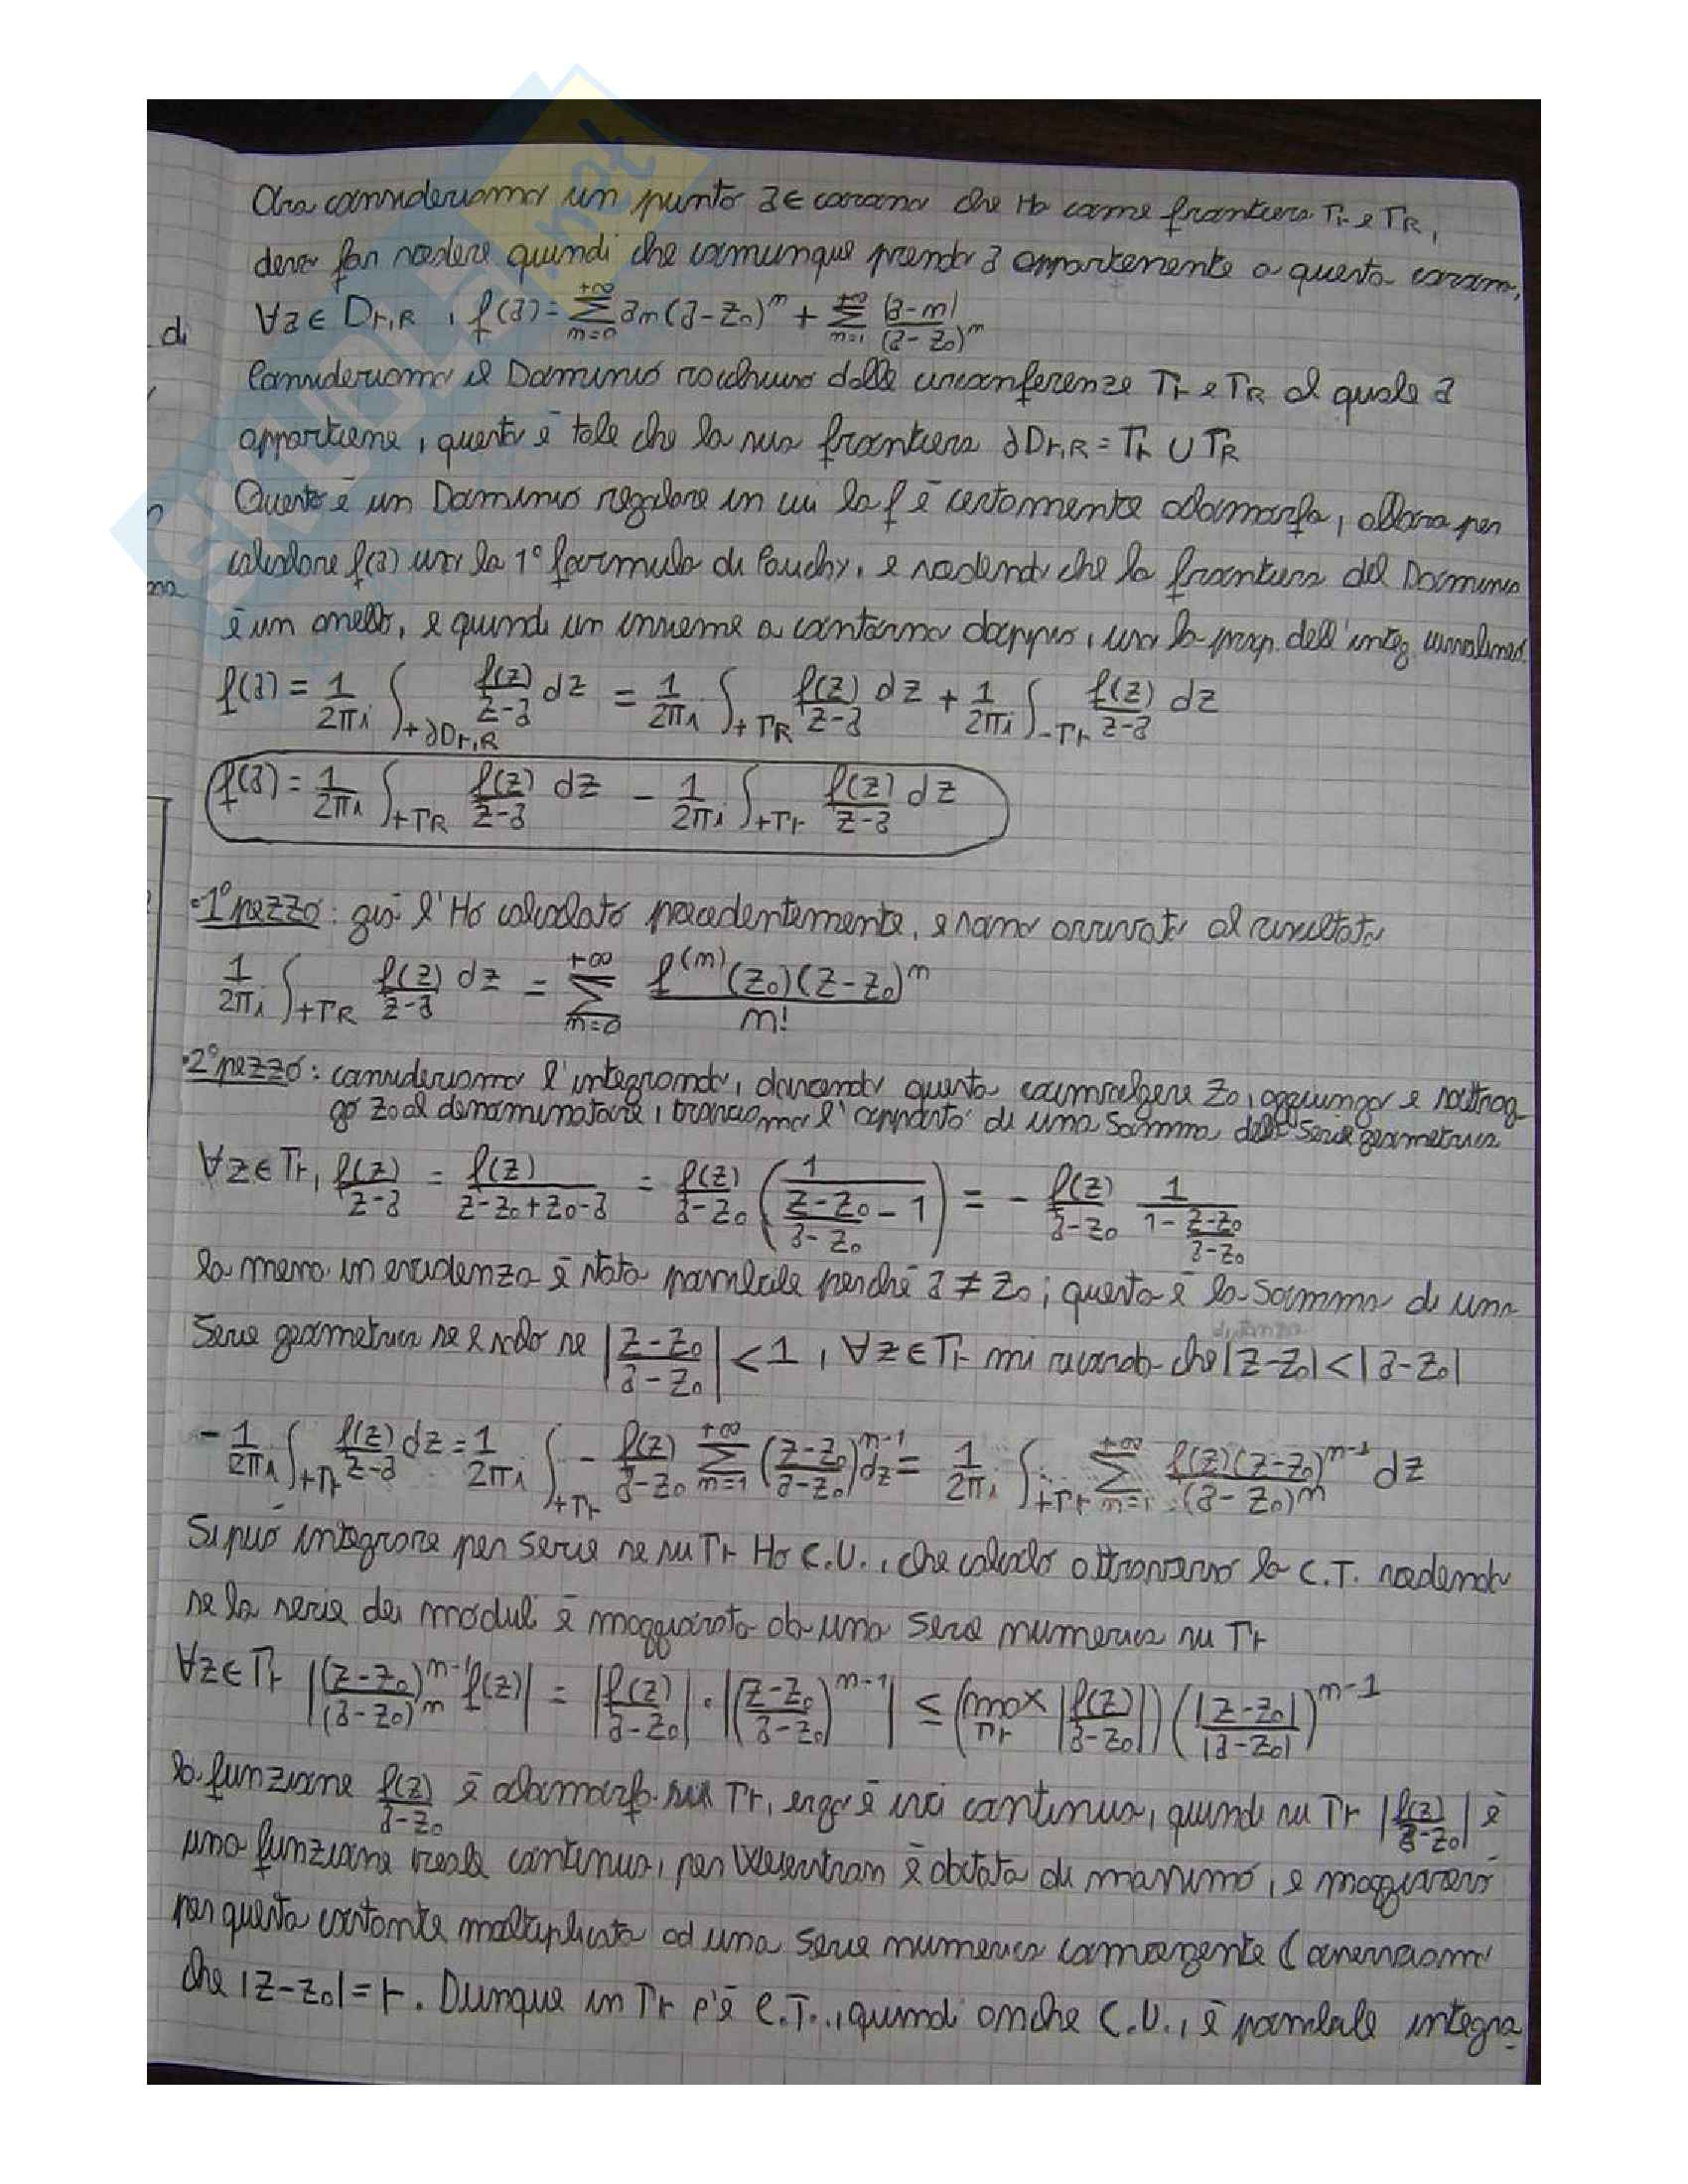 Ora consideriamo un punto z ∈ corona che ha come frontiera Γr e ΓR,
devo far vedere quindi che comunque prendo z appartenente a questa corona,
∀z ∈ Dr,R , f(z) = Σ_{m=0}^{+∞} am(z-z0)^m + Σ_{m=1}^{+∞} (a-m)/(z-z0)^m
di
Consideriamo il Dominio racchiuso dalle circonferenze Γr e ΓR al quale z
appartiene, questo è tale che la sua frontiera ∂Dr,R = Γr ∪ ΓR
Questo è un Dominio regolare in cui la f è certamente olomorfa, allora per
calcolare f(z) uso la 1° formula di Cauchy, e vedendo che la frontiera del Dominio
è un anello, e quindi un insieme a contorno doppio, uso la prop. dell'integ. curvilineo
f(z) = 1/2πi ∫_{+∂Dr,R} f(z)/(z-z) dz = 1/2πi ∫_{+ΓR} f(z)/(z-z) dz + 1/2πi ∫_{-Γr} f(z)/(z-z) dz
f(z) = 1/2πi ∫_{+ΓR} f(z)/(z-z) dz - 1/2πi ∫_{+Γr} f(z)/(z-z) dz
•1° pezzo: già l'Ho calcolato precedentemente, e sono arrivato al risultato
1/2πi ∫_{+ΓR} f(z)/(z-z) dz = Σ_{m=0}^{+∞} f^(m)(z0)(z-z0)^m / m!
•2° pezzo: consideriamo l'integrando, dovendo questo coinvolgere z0, aggiungo e sottrag-
go z0 al denominatore, troviamo l'apporto di una Somma della Serie geometrica
∀z ∈ Γr, f(z)/(z-z) = f(z)/(z-z0+z0-z) = f(z)/(z-z0) (1/((z-z0)/(z-z0) - 1)) = - f(z)/(z-z0) 1/(1-(z-z0)/(z-z0))
la messa in evidenza è stata possibile perché z ≠ z0; questa è la Somma di una
Serie geometrica se e solo se |(z-z0)/(z-z0)| < 1, ∀z ∈ Γr mi ricordo che |z-z0| < |z-z0|
distanza
- 1/2πi ∫_{+Γr} f(z)/(z-z) dz = 1/2πi ∫_{+Γr} - f(z)/(z-z0) Σ_{m=1}^{+∞} ((z-z0)/(z-z0))^{m-1} dz = 1/2πi ∫_{+Γr} Σ_{m=1}^{+∞} f(z)(z-z0)^{m-1}/(z-z0)^m dz
Si può integrare per serie se su Γr Ho C.U., che calcolo attraverso la C.T. vedendo
se la serie dei moduli è maggiorata da una Serie numerica su Γr
∀z ∈ Γr |(z-z0)^{m-1}/(z-z0)^m f(z)| = |f(z)/(z-z0)| · |((z-z0)/(z-z0))^{m-1}| ≤ (max_{Γr} |f(z)/(z-z0)|) (|z-z0|/|z-z0|)^{m-1}
la funzione f(z)/(z-z0) è olomorfa su Γr, ergo è ivi continua, quindi su Γr |f(z)/(z-z0)| è
una funzione reale continua, per Weierstrass è dotata di massimo, e maggiorerò
per questa costante moltiplicata ad una Serie numerica convergente (osserviamo
che |z-z0| = r. Dunque in Γr c'è C.T., quindi anche C.U., è possibile integra-